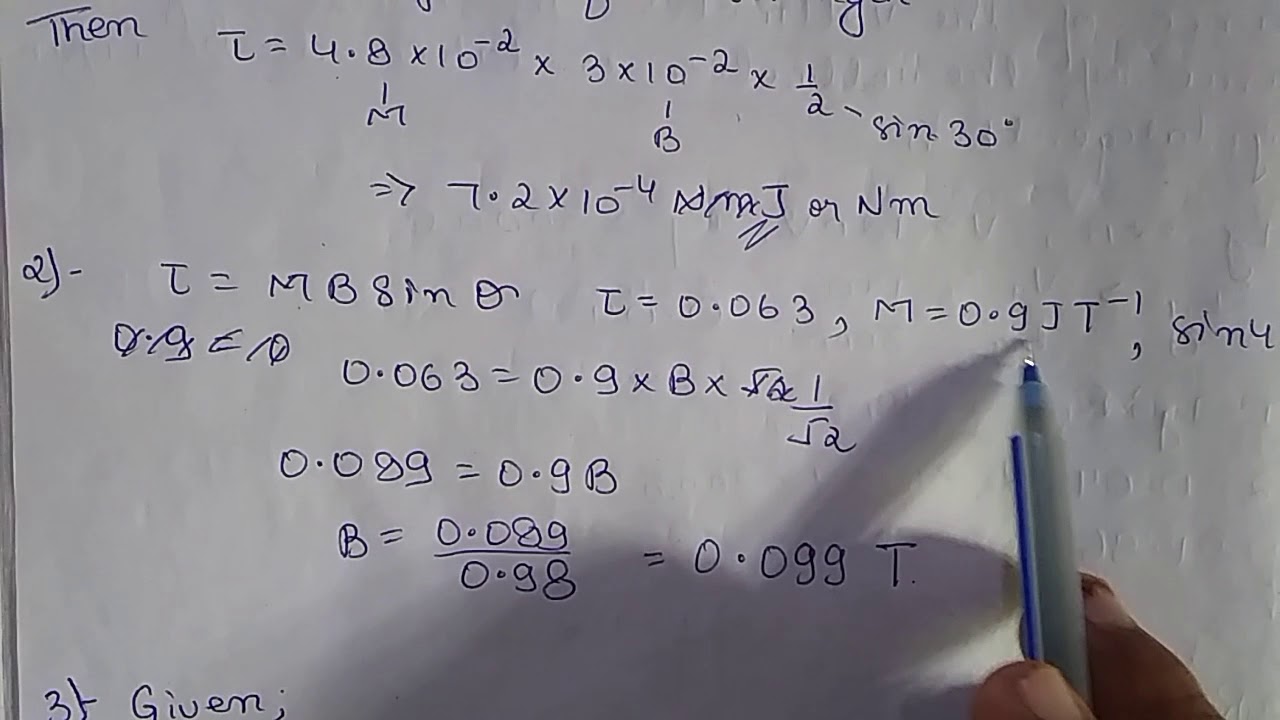 Then τ = 4.8 ×10⁻² × 3×10⁻² × 1/2 - sin 30°
M B
=> 7.2×10⁻⁴ J or Nm
2)- τ = MB sin θ τ = 0.063, M = 0.9 J T⁻¹, sin 4
0.9
0.063 = 0.9 × B × 1/√2
0.089 = 0.9 B
B = 0.089/0.98 = 0.099 T.
3) Given;